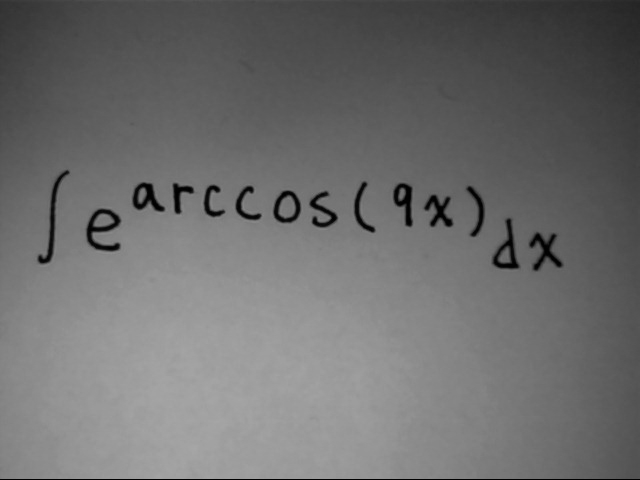 ∫e^{arccos(9x)}dx